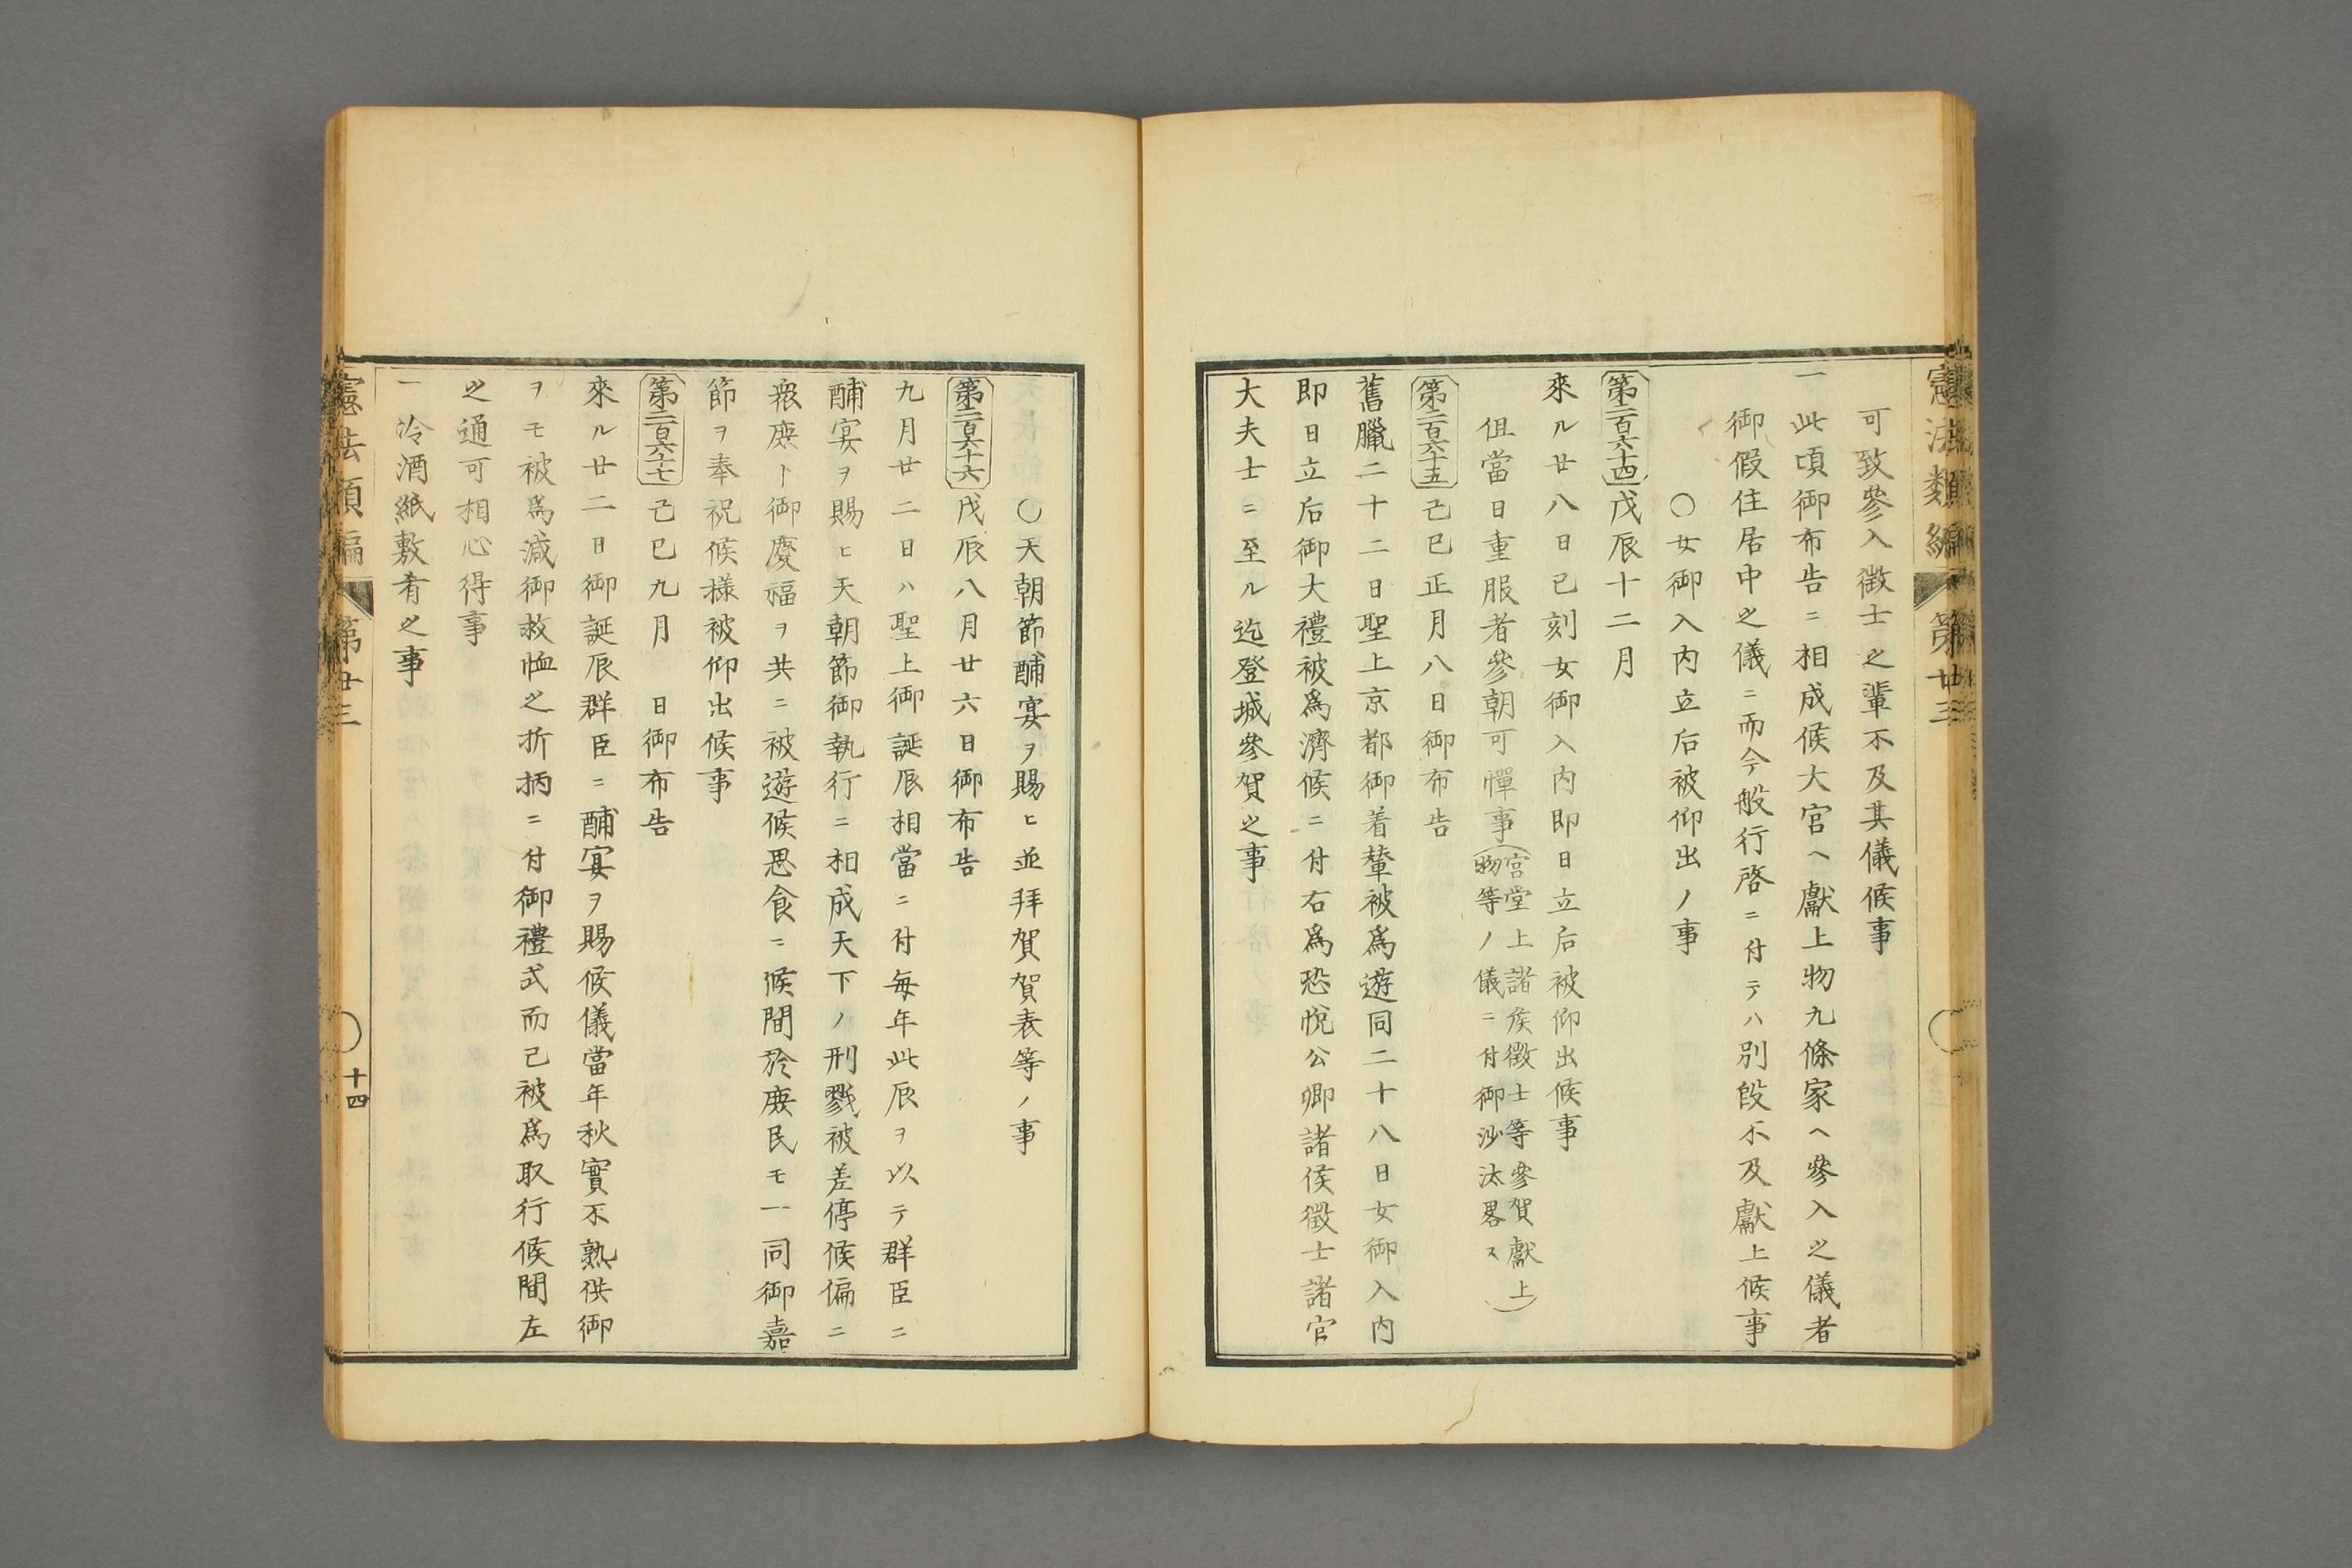 憲法類編 第廿三
可致參入徵士之輩不及其儀候事
一 此頃御布告ニ相成候大宮ヘ獻上物九條家ヘ參入之儀者
御假住居中之儀ニ而今般行啓ニ付テハ別段不及獻上候事
〇女御入內立后被仰出ノ事
第二百六十四 戊辰十二月
來ル廿八日巳刻女御入內即日立后被仰出候事
但當日重服者參朝可憚事(宮堂上諸侯徵士等參賀獻上
物等ノ儀ニ付御沙汰畧ス)
第二百六十五 己巳正月八日御布告
舊臘二十二日聖上京都御着輦被爲遊同二十八日女御入內
即日立后御大禮被爲濟候ニ付右爲恐悅公卿諸侯徵士諸官
大夫士ニ至ル迄登城參賀之事
〇天朝節酺宴ヲ賜ヒ並拜賀賀表等ノ事
第二百六十六 戊辰八月廿六日御布告
九月廿二日ハ聖上御誕辰相當ニ付每年此辰ヲ以テ群臣ニ
酺宴ヲ賜ヒ天朝節御執行ニ相成天下ノ刑戮被差停候偏ニ
衆庶ト御慶福ヲ共ニ被遊候思食ニ候間於庶民モ一同御嘉
節ヲ奉祝候樣被仰出候事
第二百六十七 己巳九月 日御布告
來ル廿二日御誕辰群臣ニ酺宴ヲ賜候儀當年秋實不熟供御
ヲモ被爲減御救恤之折柄ニ付御禮式而已被爲取行候間左
之通可相心得事
一 冷酒紙敷肴之事
憲法類編 第廿三 十四